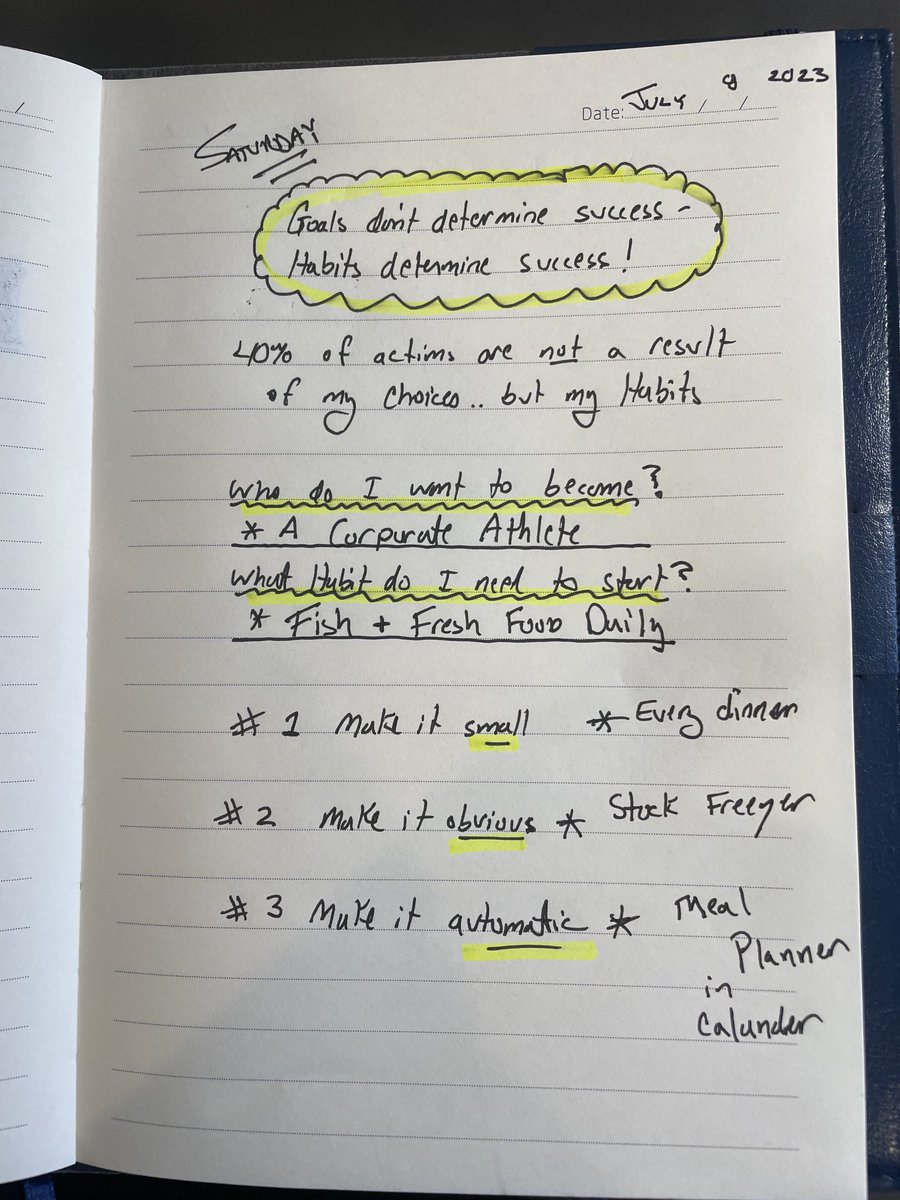 Date: JULY / 8 / 2023
SATURDAY
Goals don't determine success -
Habits determine success!
40% of actions are not a result
of my choices.. but my Habits
Who do I want to become?
* A Corporate Athlete
What Habit do I need to start?
* Fish + Fresh Food Daily
# 1 Make it small * Every dinner
# 2 Make it obvious * Stock Freezer
# 3 Make it automatic * Meal
Planner
in
Calander